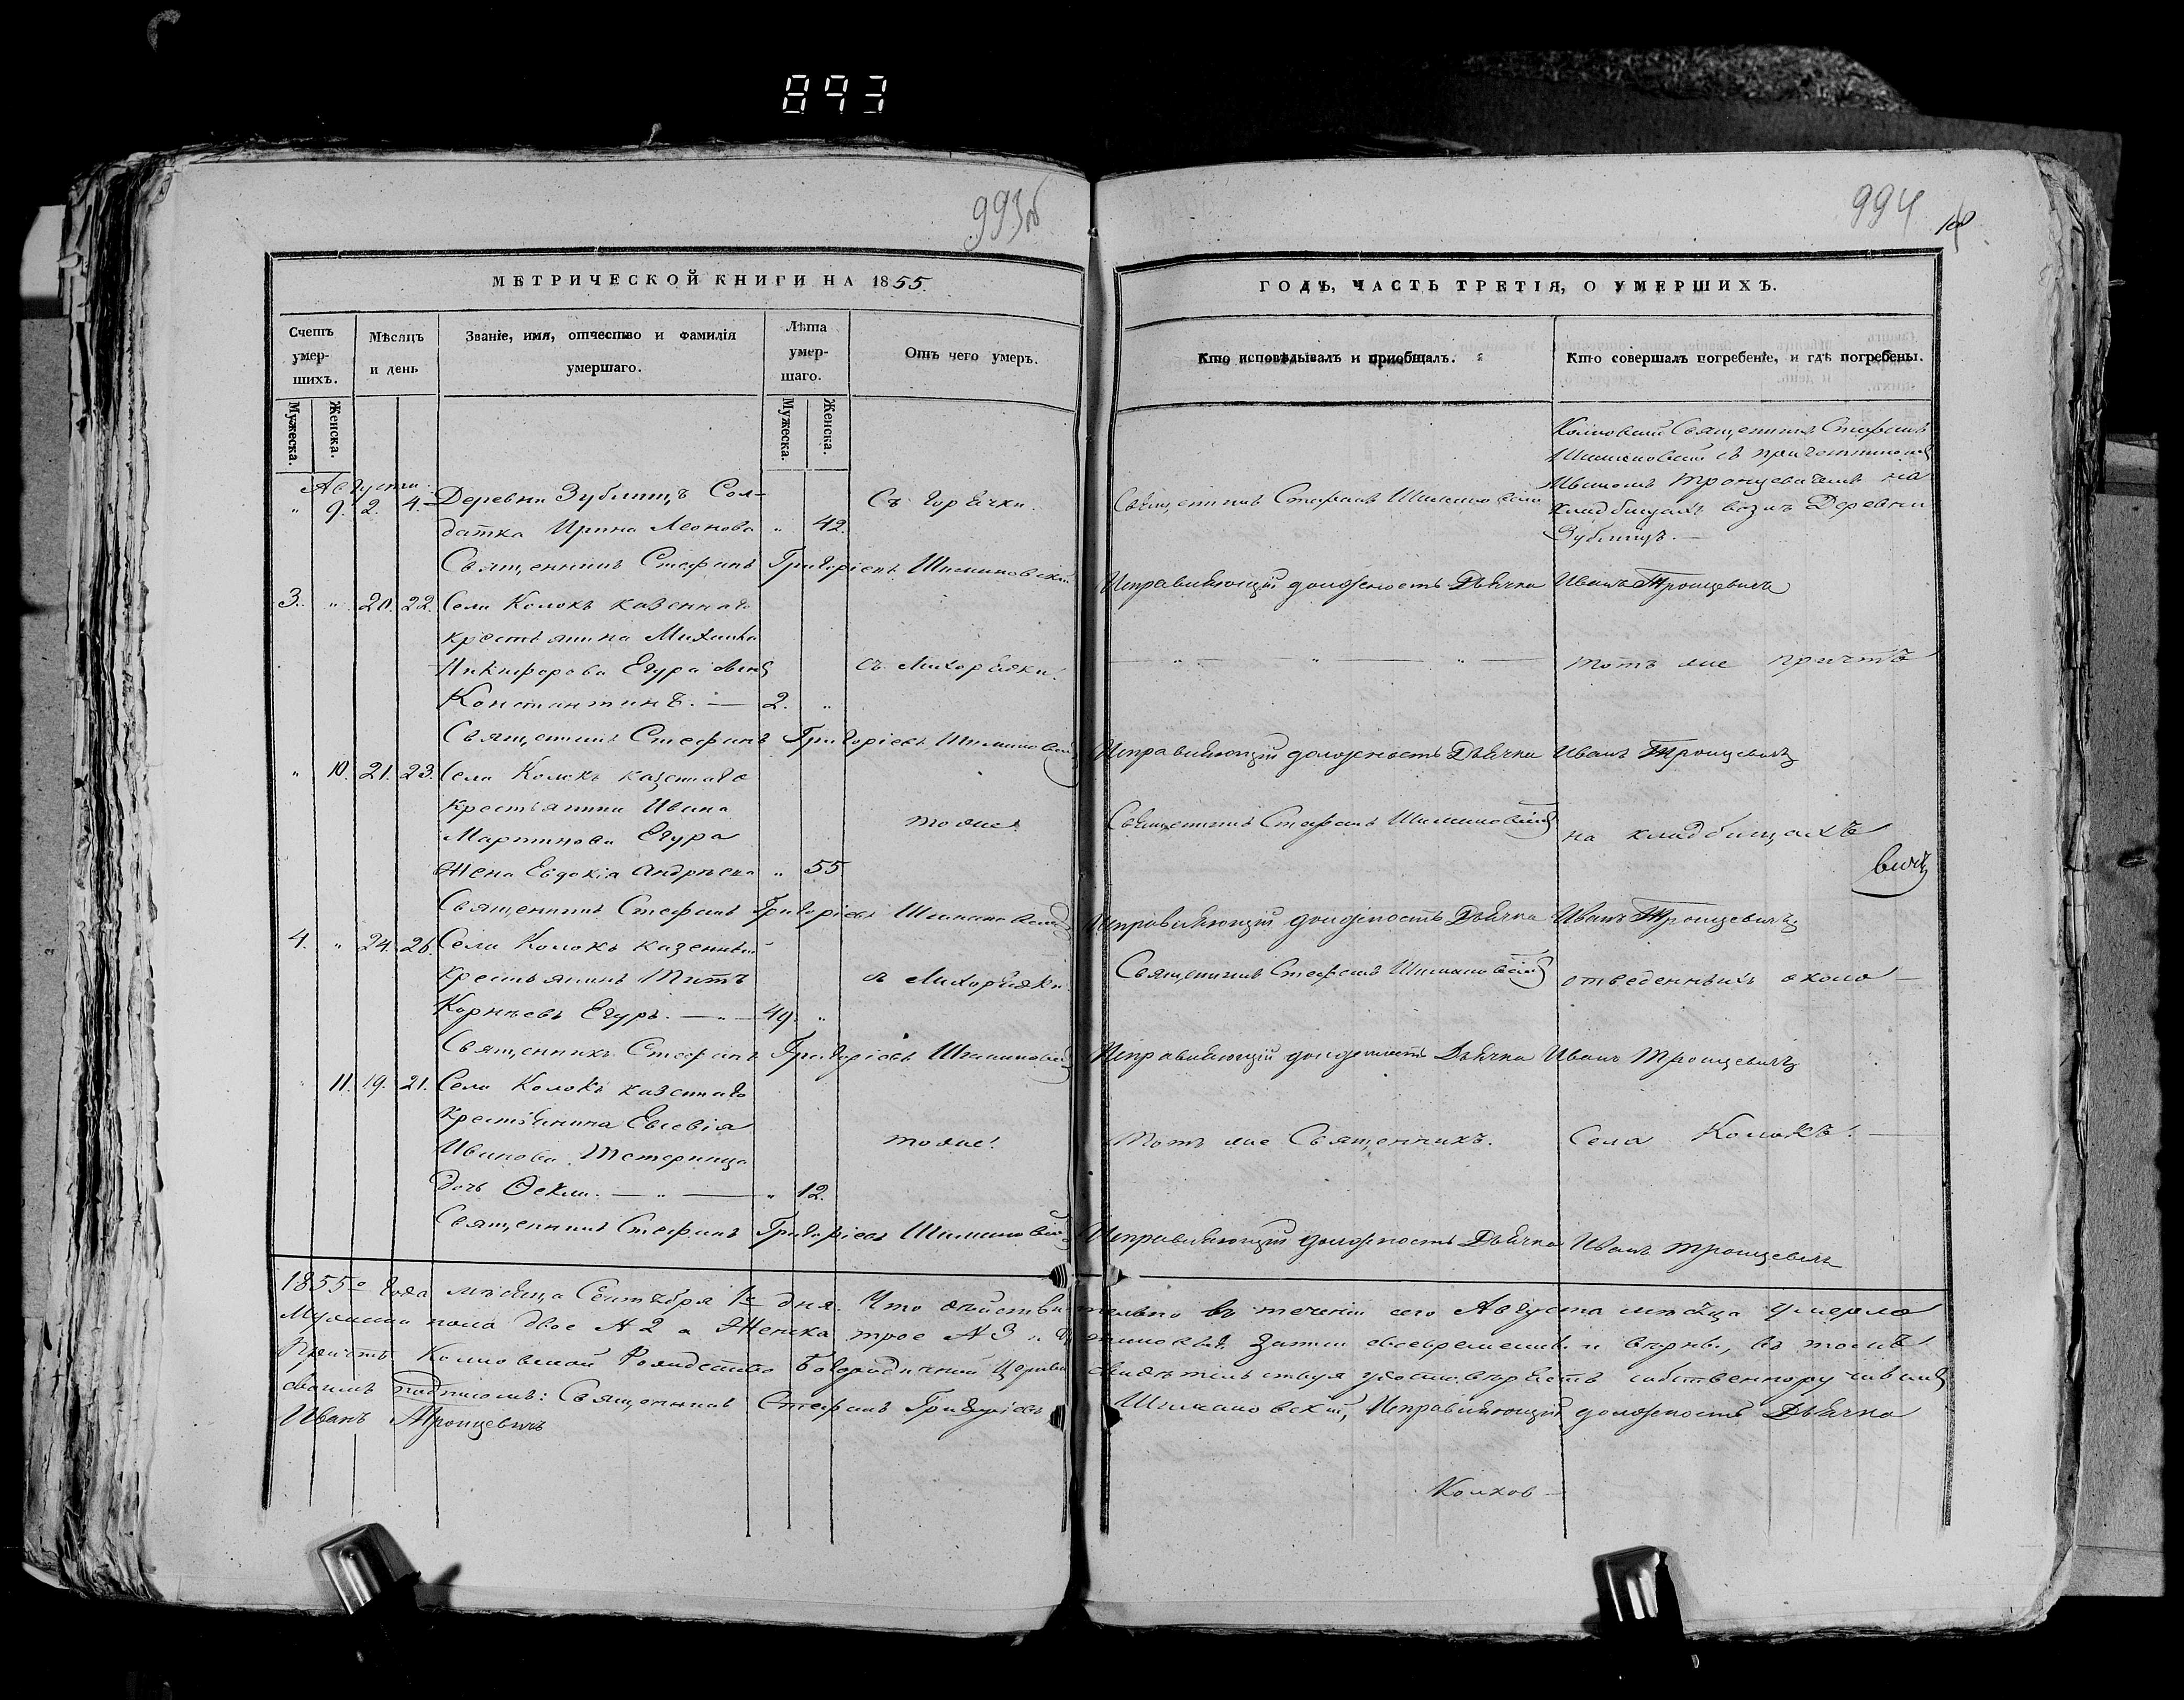 893
993об
МЕТРИЧЕСКОЙ КНИГИ НА 1855.
Счетъ умер- шихъ.
Мѣсяцъ и день
Званіе, имя, отчество и фамилія умершаго.
Лѣта умер- шаго.
Отъ чего умеръ.
Мужеска.
Женска.
Мужеска.
Женска.
Августа
" 9. 2. 4. Деревни Зублищъ Сол-
датка Ирина Леонова " 42. Съ горячки.
Священникъ Стефанъ Григоріевъ Шимановскій
3. " 20. 22. Села Колокъ казеннаго
крестьянина Михаила
Никифорова Егура сынъ съ Лихорадки.
Константинъ. — 2. "
Священникъ Стефанъ Григоріевъ Шимановскій
" 10. 21. 23. Села Колокъ казеннаго
крестьянина Ивана
Мартинова Егура тоже.
жена Евдокія Андреева " 55
Священникъ Стефанъ Григоріевъ Шимановскій
4. " 24. 26. Села Колокъ казенный
крестьянинъ Титъ съ Лихорадки.
Корнѣевъ Егуръ. — " — 49. "
Священникъ Стефанъ Григоріевъ Шимановскій
" 11. 19. 21. Села Колокъ казеннаго
Крестьянина Евсевія
Иванова Тетеринца тоже.
дочь Ѳекла. — " — " 12.
Священникъ Стефанъ Григоріевъ Шимановскій
994
ГОДЪ, ЧАСТЬ ТРЕТІЯ, О УМЕРШИХЪ.
Кто исповѣдывалъ и приобщалъ.
Кто совершалъ погребеніе, и гдѣ погребены.
Священникъ Стефанъ Шимановскій
Священникъ Стефанъ
Шимановскій съ причетникомъ
Иваномъ Троцевичемъ на
кладбищахъ возлѣ Деревни
Зублищъ. —
Исправляющій должность Дьячка Иванъ Троцевичъ
— " — " — " — тотъ же причтъ
Исправляющій должность Дьячка Иванъ Троцевичъ
Священникъ Стефанъ Шимановскій на кладбищахъ
вичъ
Исправляющій должность Дьячка Иванъ Троцевичъ
Священникъ Стефанъ Шимановскій отведенныхъ около —
Исправляющій должность Дьячка Иванъ Троцевичъ
Тотъ же Священникъ. Села Колокъ. —
Исправляющій должность Дьячка Иванъ Троцевичъ
1855го Года мѣсяца Сентября 1го дня. Что дѣйствительно въ теченіи сего Августа мѣсяца умерло
Мужеска пола двое № 2 а Женска трое № 3 и записаны своевременно и вѣрно, въ томъ
Причтъ Колковской Рождество Богородичной Церкви свидѣтельствуя удостовѣряетъ собственноручнымъ
своимъ подписомъ: Священникъ Стефанъ Григоріевъ Шимановскій, Исправляющій должность Дьячка
Иванъ Троцевичъ
Колков —